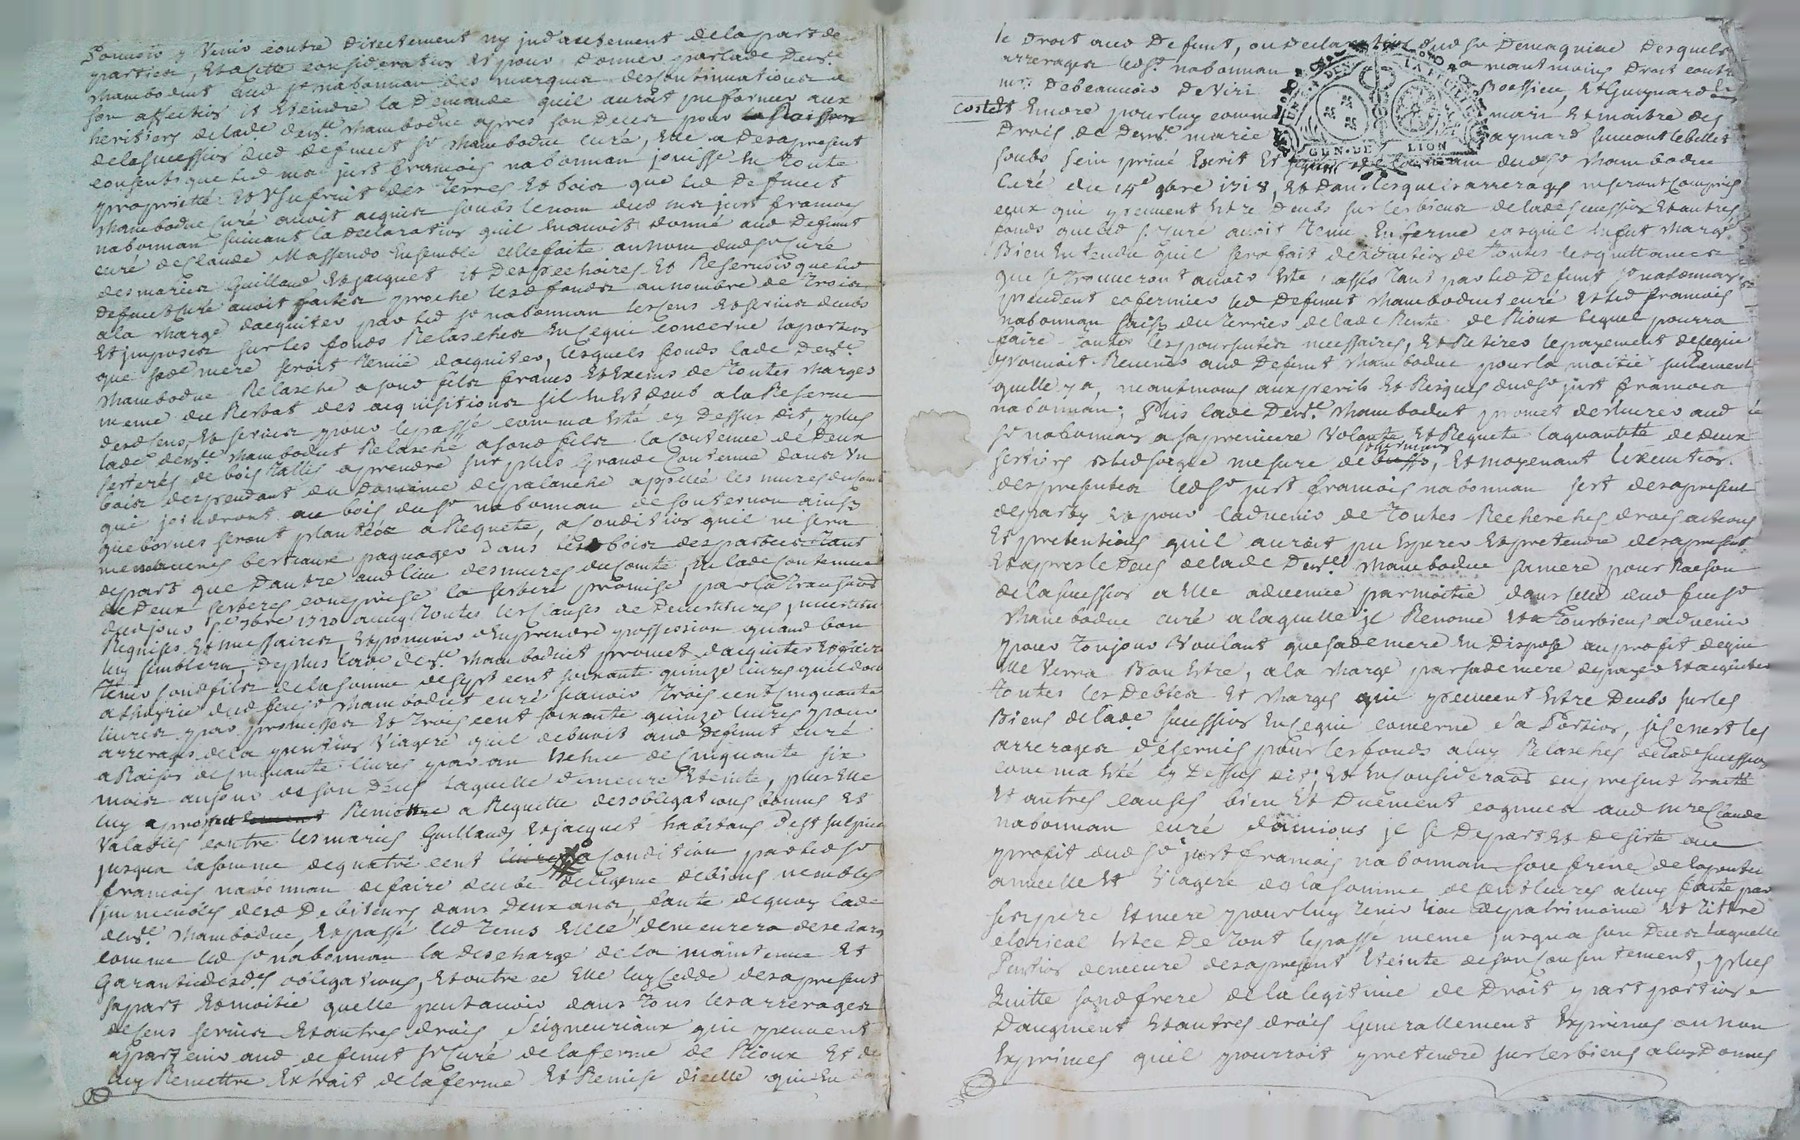 Pouvoir y venir contre directement ny indirectement de la part de
parties, Et a cette consideration Et pour donner par lade Devlle
Chamboduc aud sr nabonnan des marques des continuations de
son affection et Eteindre la Demande quil auroit pu former aux
heritiers de lade Devlle Chamboduc apres son Deces pour
de la succession dud deffunct sr Chamboduc curé, Elle a Desapresent
consenti que led mr just francois nabonnan jouisse En toute
proprieté Et Usufruit des terres Et bois que led Deffunct
Chamboduc curé avoit acquis soubs le nom dud mr just francois
nabonnan suivant la declaration quil En avoit donné aud Deffunct
curé de Claude Ensemble celle faite au nom dud sr curé
des mariés Guilland Et jacquet Et des pechoires Et Reservoir que led
deffunct curé avoit faites proche lesd fonds au nombre de trois
a la charge dacquiter par led sr nabonnan les cens Et servis deubs
Et imposés sur les fonds Relasches En ce qui concerne la portion
que sade mere seroit tenue dacquiter, lesquels fonds lade Devlle
Chamboduc Relasche a sond fils francs Et Exems de toutes charges
meme du Restat des acquisitions sil En Est deub a la Reserve
desd cens Et servis pour le passé comme a esté cy dessus dit, plus
lade Devlle Chamboduc Relasche a sond fils la contenue de Deux
sesterés de bois tallis a prendre sur plus Grande Contenue dans un
bois despendant du Domaine de palanche appelle les mures du comte
qui joindront au bois dud sr nabonnan de souternon ainsy
que bornes seront plantées a Requete, a condition quil ne sera
mené aucuns bestiaux paquager dans lesd bois des parties tant
depart que Dautre aud lieu des mures du comte, En lade contenue
de Deux sesterés comprise la sesteré promise par la transaction
dud jour 7bre 1720 avec toutes les clauses de Devestitures investitures
Requises Et necessaires Et pouvoir dEn prendre possession quand bon
luy semblera, de plus lade devlle Chamboduc promet dacquiter Et faire
tenir sond fils de la somme de sept cent soixante quinze livres quil doit
a lhoirie dud feu sr Chamboduc curé scavoir trois cent cinquante
livres par promesses Et trois cent soixante quinze livres pour
arrerages de la pention Viagere quil debvoit aud Deffunct curé
a Raison de cinquante livres par an Echue de Cinquante six
mois au jour de son Deces laquelle demeure Eteinte, plus Elle
luy a promis Remettre a Requette des obligations bonnes Et
Valables contre les mariés Guilland Et jacquet habitans de st sulpice
jusqua la somme de quatre cent a condition par led sr
francois nabonnan de faire deube deligence de biens meubles
immeubles desd Debiteurs dans deux ans, faute de quoy lade
devlle Chamboduc, Et passé led tems Elle demeurera deschargée
comme led sr nabonnan la descharge de la maintenue Et
Garantie desdes obligations, Et outre ce Elle luy cedde desapresent
sa part Et moitié quelle peut avoir dans tous les arrerages
de cens servis Et autres drois seigneuriaux qui peuvent
apartenir aud deffunct sr Curé de la ferme de Rioux Et de
luy Remettre Extrait de la ferme Et Remise dicelle qui En
le Droit aud Deffunt, ou Declaration dud sr Demagniac Desquels
arrerages led sr nabonnan neantmoins Droit contre
mrs Debeaucois de Viri Boessieu, Et Guynard
costet Encore pour luy comme mari Et maitre des
Drois de Devlle marie aymard suivant le billet
soubs sein privé Escrit Et signé dud sr Chamboduc
Curé du 14e 9bre 1718, Et dans lesquels arrerages ne seront Compris
ceux qui peuvent Etre Deubs sur les biens de lade succession Et autres
fonds que led sr curé avoit tenu En ferme ou quil En fut chargé
Bien Entendu quil sera fait desduction de toutes les quittances
que se trouveront avoir Esté passés tant par led Deffunt sr nabonnan
precedent cofermier led Deffunct Chamboduc curé Et led francois
nabonnan saisi du Terrier de lade Rente de Rioux lequel pourra
faire toutes les poursuites necessaires, Et Retirer le payement de ce qui
pouvoit Revenir aud Deffunt Chamboduc pour la moitié seulement
quelle y a, neantmoins aux perils Et Risques dud sr just francois
nabonnan; Plus lade Devlle Chamboduc promet delivrer aud
sr nabonnan a sa premiere Volonté Et Requete la quantité de deux
sestiers bled seigle mesure de Et moyenant l'execution
des presentes led sr just francois nabonnan sest desapresent
desparty Et pour ladvenir de toutes Recherches drois actions
Et pretentions quil auroit pu Esperer Et pretendre desapresent
Et apres le Deces de lade Devlle Chamboduc sa mere pour Raison
de la succession a Elle advenue par moitié dans celle dud feu sr
Chamboduc curé a laquelle il Renonce Et a tous biens advenir
pour toujour Voulant que sade mere En Dispose au profit de qui
Elle Verra Bon Etre, a la charge par sade mere de payer Et acquiter
toutes les Debtes Et charges qui peuvent Etre Deubs sur les
Biens de lade succession En ce qui concerne sa Portion, si ce nest les
arrerages des servis pour les fonds a luy Relaschés de lade succession
comme a Esté cy Dessus dit; Et En consideration du present traitté
Et autres causes bien Et Duement cognues aud mre Claude
nabonnan curé damions il se Depart Et desiste au
profit dud sr just francois nabonnan son frere de la pention
annuelle Et Viagere de la somme de cent livres a luy faite par
ses pere Et mere pour luy tenir lieu de patrimoine Et tittre
clerical Et ce De tout le passé meme jusqua son Deces laquelle
Pention demeure desapresent Eteinte de son consentement, plus
Quitte sond frere de la legitime de Droit part portion
Daugment Et autres drois Generallement Exprimés ou non
Exprimés quil pourroit pretendre sur les biens a luy Donnés
GEN. DE LION